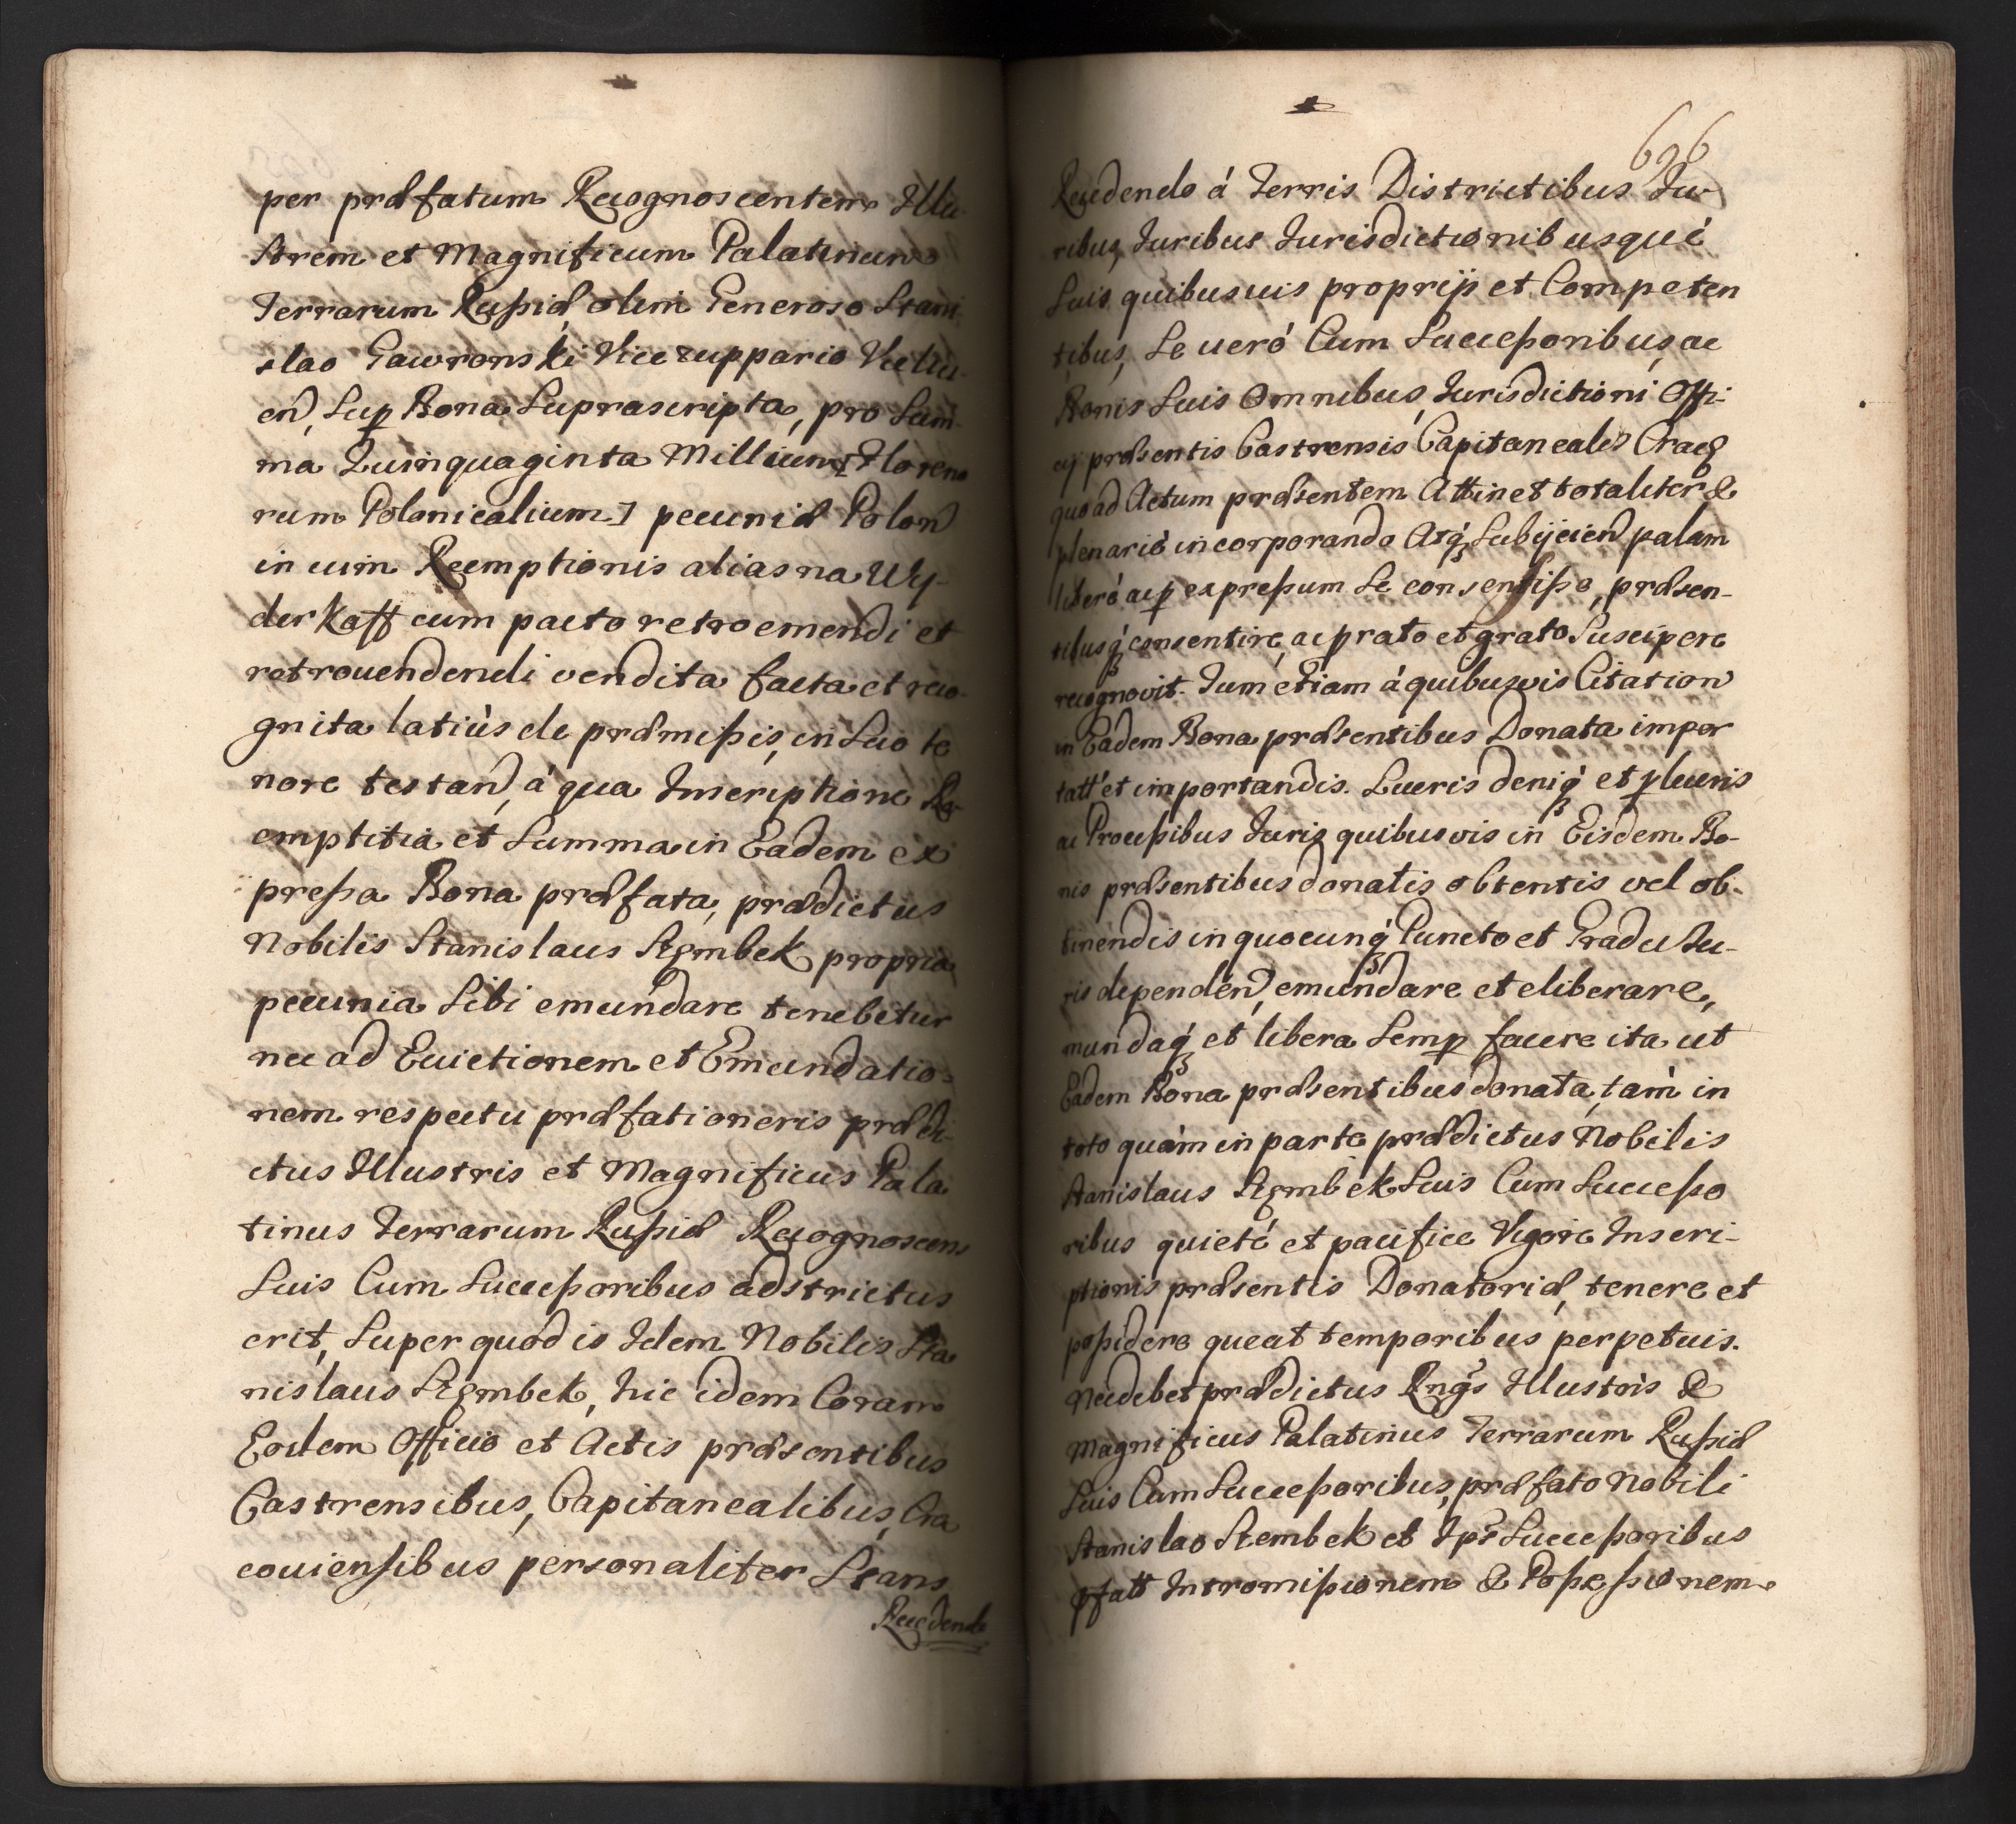 per præfatum Recognoscentem Illu
strem et Magnificum Palatinum
Terrarum Rußiæ, olim Generoso Stani
slao Gawronski Vicezuppario Vieliciend, Sup Bona Suprascripta, pro Sum-
ma Quinquaginta Millium [Floreno
rum Polonicalium] pecuniæ Polon
in uim Reemptionis alias na Wy-
derkaff cum pacto retroemendi et
retrouendendi vendita facta et reco-
gnita latiùs de præmißis, in Suo te
nore testand, á qua Inscriptione Re
emptitia et Summa in Eadem ex
preßa Bona præfata, prædictus
Nobilis Stanislaus Szembek propria
pecunia Sibi emundare tenebitur
nec ad Euictionem et Emundatio-
nem respectu præfati oneris prædi-
ctus Illustris et Magnificus Pala
tinus Terrarum Rußiæ Recognoscens
Suis Cum Succeßoribus adstrictus
erit, Super quod is Idem Nobilis Sta
nislaus Szembek, hic idem Coram
Eodem Officio et Actis præsentibus
Castrensibus, Capitanealibus, Cra
couiensibus personaliter Stans
Recedendo
696
Recedendo á Terris Districtibus Iu-
ribus, Iuribus Iurisdictionibusqué
Suis quibusuis proprijs et Competen
tibus, Se ueró Cum Succeßoribus, ac
Bonis Suis Omnibus, Iurisdictioni Offi-
cij præsentis Castrensis Capitanealis Crac
quoad Actum præsentem Attinet totaliter &
plenarié incorporando Atq Subijciend palam
liberé ac p expreßum Se consensiße, præsen-
tibusq consentire, ac p rato et grato Suscipere
recognovit. Tum etiam á quibusvis Citation
in Eadem Bona præsentibus Donata impor
tatt et importandis. Lucris deniq et plucris
ac Proceßibus Iuris quibusvis in Eisdem Bo-
nis præsentibus donatis obtentis vel ob-
tinendis in quocunq Puncto et Gradu Iu-
ris dependen, emundare et eliberare,
mundaq et libera Semp facere ita ut
Eadem Bona præsentibus donata, tàm in
toto quàm in parte prædictus Nobilis
Stanislaus Szembek Suis Cum Succeßo
ribus quieté et pacifice Vigore Inscri-
ptionis præsentis Donatoriæ, tenere et
poßidere queat temporibus perpetuis.
Nec debet prædictus Rngs Illustris &
Magnificus Palatinus Terrarum Rußiæ
Suis Cum Succeßoribus, præfato Nobili
Stanislao Szembek et Ips Succeßoribus
pfatt Intromißionem & Poßeßionem